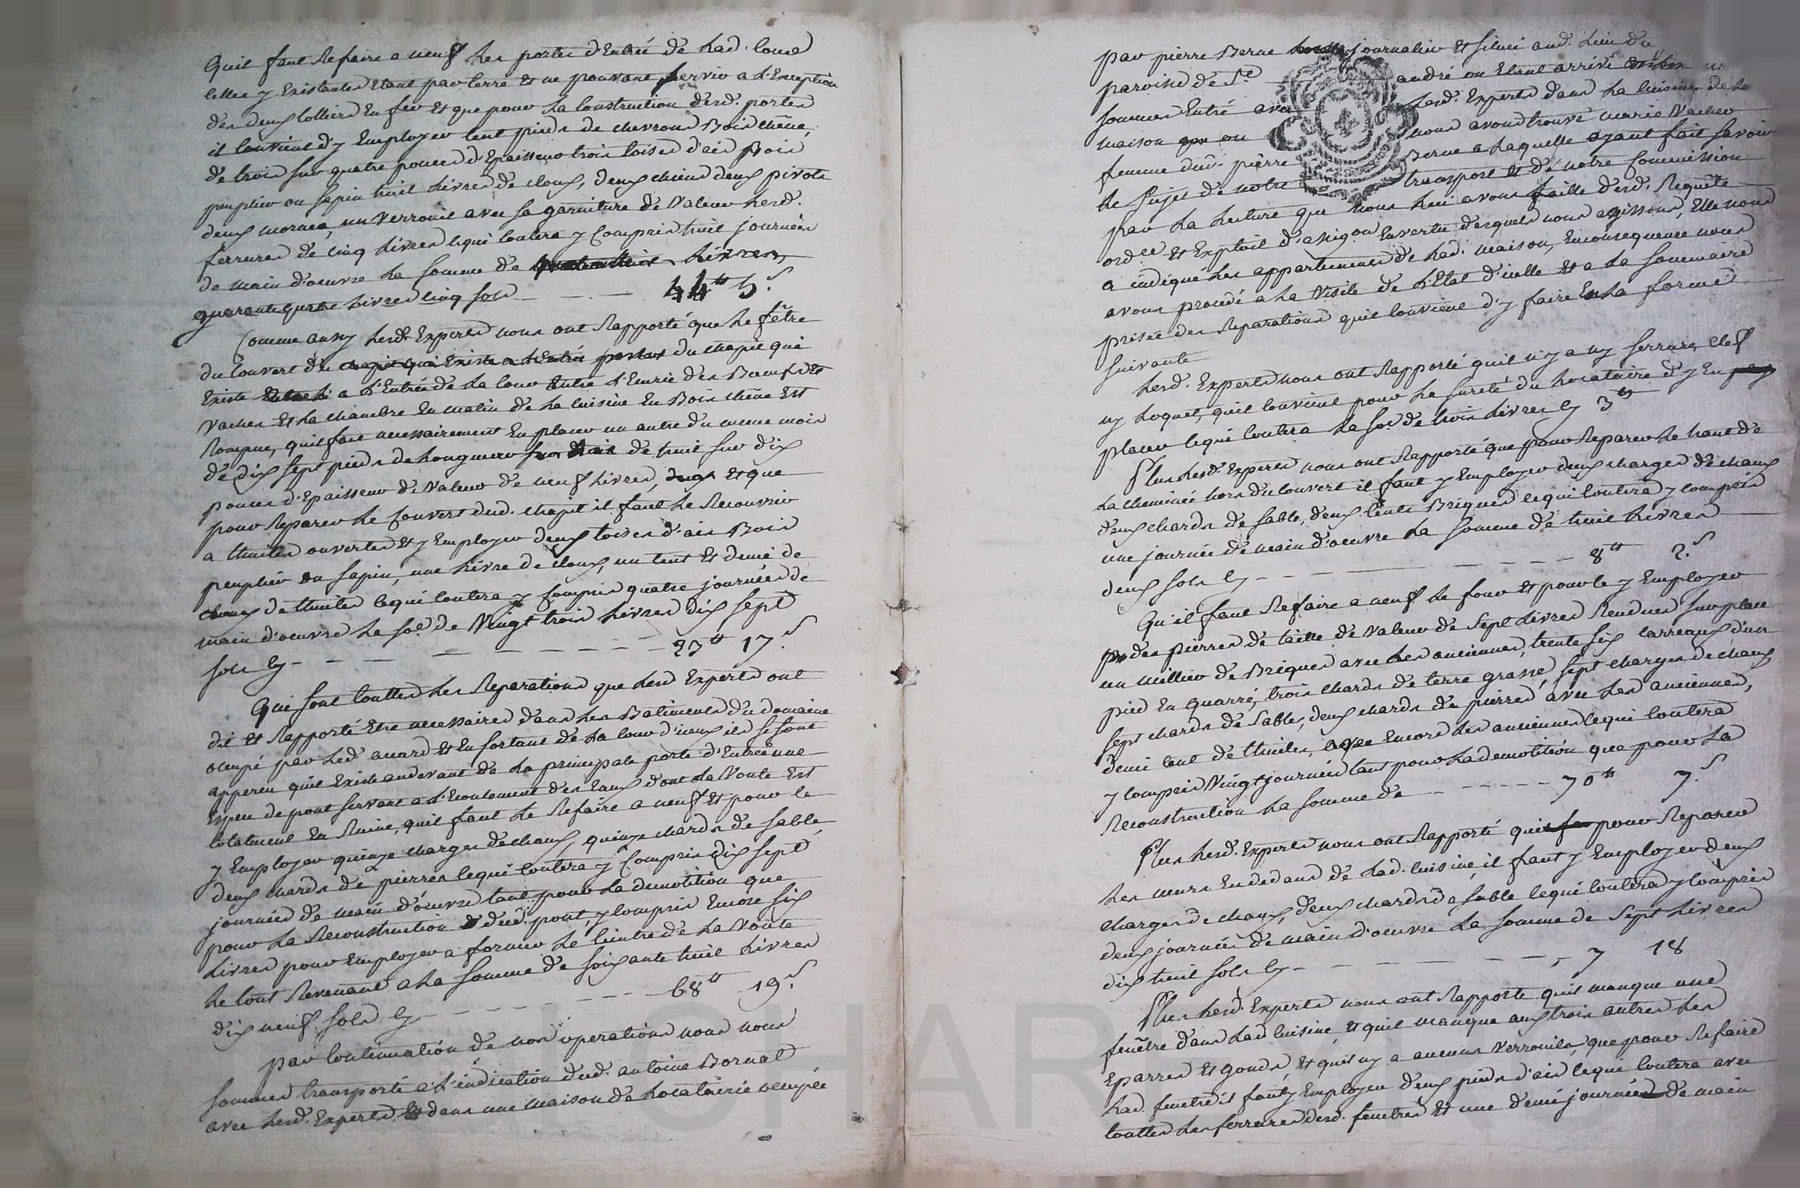 Quil faut Refaire a neuf les portes d'Entrée de lad. cour
celles y Existantes Etant par terre et ne pouvant servir a l'Exception
des deux colliers en fer et que pour la construction desd. portes
il convient d'y Employer cent pieds de chevrons Bois chêne,
de trois sur quatre pouces d'Epaisseur trois toises d'ais Bois
peuplier ou sapin huit livres de cloux, deux deux pivots
deux un verrouil avec sa garniture de valeur lesd.
ferrures de cinq livres lequi coutera y compris huit journées
de main d'oeuvre la somme de livres
quarante quatre livres cinq sols 44 tt 5 s
Comme aussy lesd. Experts nous ont Rapporté que le fêtre
du couvert du chapit qui Existe a l'Entrée du chapit qui
Existe a l'Entrée de la cour Entre l'Ecurie des Boeufs et
vaches Et la chambre En matin de la cuisine En Bois chêne Est
Rompue, quil faut necessairement En placer un autre du meme bois
de dix sept pieds de longueur de huit sur dix
pouces d'Epaisseur de valeur de neuf livres, Et que
pour Reparer le Couvert dud. chapit il faut le Recouvrir
a thuiles ouvertes Et y Employer deux toises d'ais Bois
peuplier ou sapin, une livre de cloux, un cent et demi de
de thuiles lequi coutera y compris quatre journées de
main d'oeuvre la so.e de vingt trois livres dix sept
sols cy 23 tt 17 s
Qui sont touttes les Reparations que lesd Experts ont
dit Et Rapporté Etre necessaires dans les Batiments du domaine
ocupé par led. Et En sortant de la cour d'iceux ils se sont
apperçu quil Existe audevant de la principale porte d'Entrée une
Espece de pont servant a l'Ecoulement des Eaux dont la voute Est
totalement En Ruine, quil faut le Refaire a neuf Et pour le
y Employer quinze charges de chaux, quinze chards de sable
deux chards de pierres lequi coutera y compris dix sept
journées de main d'oeuvre tant pour la demolition que
pour la Reconstruction dud. pont, y compris Encore six
livres pour Employer a former le cintre de la voute
le tout Revenant a la somme de soixante huit livres
dix neuf sols cy 68 tt 19 s
par continuation de nos operations nous nous
sommes transporté a l'indication dud. antoine Bornat
avec lesd. Experts dans une maison de locaterie ocupée
par pierre Berne journalier Et situé aud. lieu du
paroisse de St andré ou Etant arrivé
sommes Entré avec lesd. Experts dans la cuisine de la
maison ou nous avons trouvé marie Vacher
femme dud. pierre Berne a laquelle ayant fait savoir
le sujet de notre transport et de notre Commission
par la lecture que nous luy avons faitte desd. Requête
ord.ce et Exploit d'assig.on En vertu desquels nous agissons, Elle nous
a indiqué les appartements de lad. maison, En consequence nous
avons procédé a la visite de l'Etat d'icelle et a la sommaire
prisée des Reparations quil convient d'y faire En la forme
suivante
lesd. Experts nous ont Rapporté quil n'y a ny serrure clef
ny loquet, quil convient pour la sureté du locataire d'y En
placer lequi coutera la so.e de trois livres cy 3 tt
Plus lesd. Experts nous ont Rapporté que pour Reparer le haut de
la cheminée hors du couvert il faut y Employer deux charges de chaux
deux chards de sable, deux cents Briques lequi coutera y compris
une journée de main d'oeuvre la somme de huit livres
deux sols cy 8 tt 2 s
Qu'il faut Refaire a neuf le four et pour le y Employer
des pierres de taille de valeur de sept livres Rendues sur place
un millier de Briques avec les anciennes, trente six carreaux d'un
pied En quarré, trois chards de terre grasse, sept charges de chaux
sept chards de sable, deux chards de pierres avec les anciennes,
demi cent de thuiles, avec Encore les anciennes lequi coutera
y compris vingt journées tant pour la demolition que pour la
Reconstruction la somme de 70 tt 7 s
Plus lesd. Experts nous ont Rapporté pour Reparer
les murs En dedans de lad. cuisine, il faut y Employer deux
charges de chaux, deux chards de sable lequi coutera y compris
deux journées de main d'oeuvre la somme de sept livres
dix huit sols cy 7 18
Plus lesd. Experts nous ont Rapporté quil manque une
fenêtre dans lad. cuisine et quil manque aux trois autres les
Eparres Et gonds Et quil n'y a aucuns verrouils, que pour Refaire
lad. fenetre il faut y Employer deux pieds d'ais lequi coutera avec
touttes les ferrures desd. fenetres et une demi journée de main